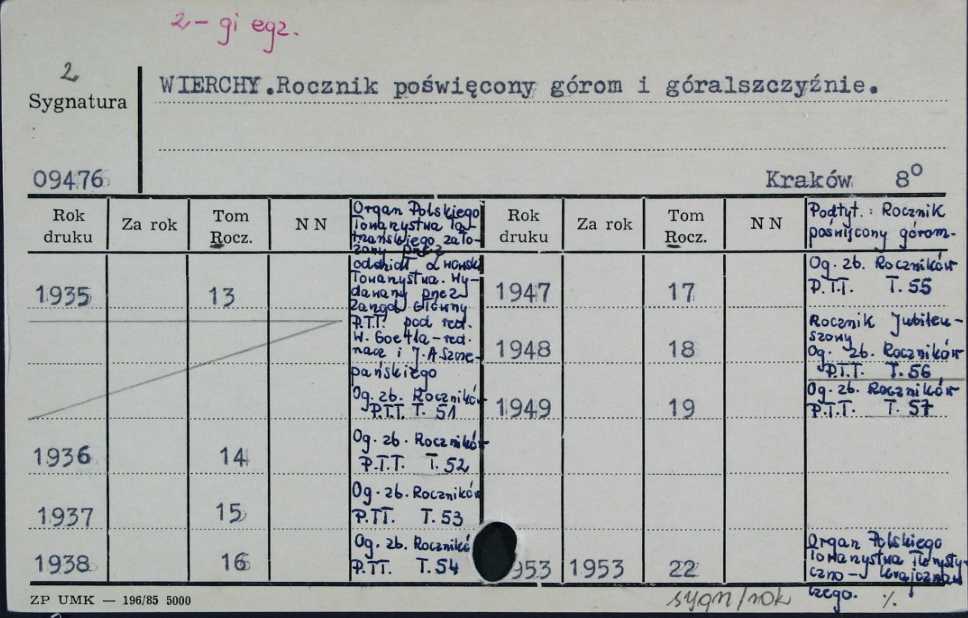 2-gi egz.
2
Sygnatura
WIERCHY.Rocznik poświęcony górom i góralszczyźnie.
09476
Kraków 8º
Rok druku
Za rok
Tom Rocz.
N N
Organ Polskiego
Towarzystwa Ta-
trzańskiego zało-
żony przez
oddział Lwowski
Towarzystwa. Wy-
dawany przez
Zarząd Główny
P.T.T. pod red.
W. Goetla-red.
nacz i J.A.Szcze-
pańskiego
Og. zb. Roczników
P.T.T. T. 51
1935 13
1936 14 Og. zb. Roczników
P.T.T. T. 52
1937 15 Og. zb. Roczników
P.TT. T. 53
1938 16 Og. zb. Rocznikó
P.TT. T. 54
Rok druku
Za rok
Tom Rocz.
N N
Podtyt.: Rocznik
poświęcony górom.
1947 17 Og. zb. Roczników
P.T.T. T. 55
1948 18 Rocznik Jubileu-
szowy
Og. zb. Roczników
P.T.T. T. 56
1949 19 Og. zb. Roczników
P.T.T. T. 57
953 1953 22 Organ Polskiego
Towarzystwa Turysty-
czno-Krajoznaw
czego.
ZP UMK — 196/85 5000
sygn/rok
%